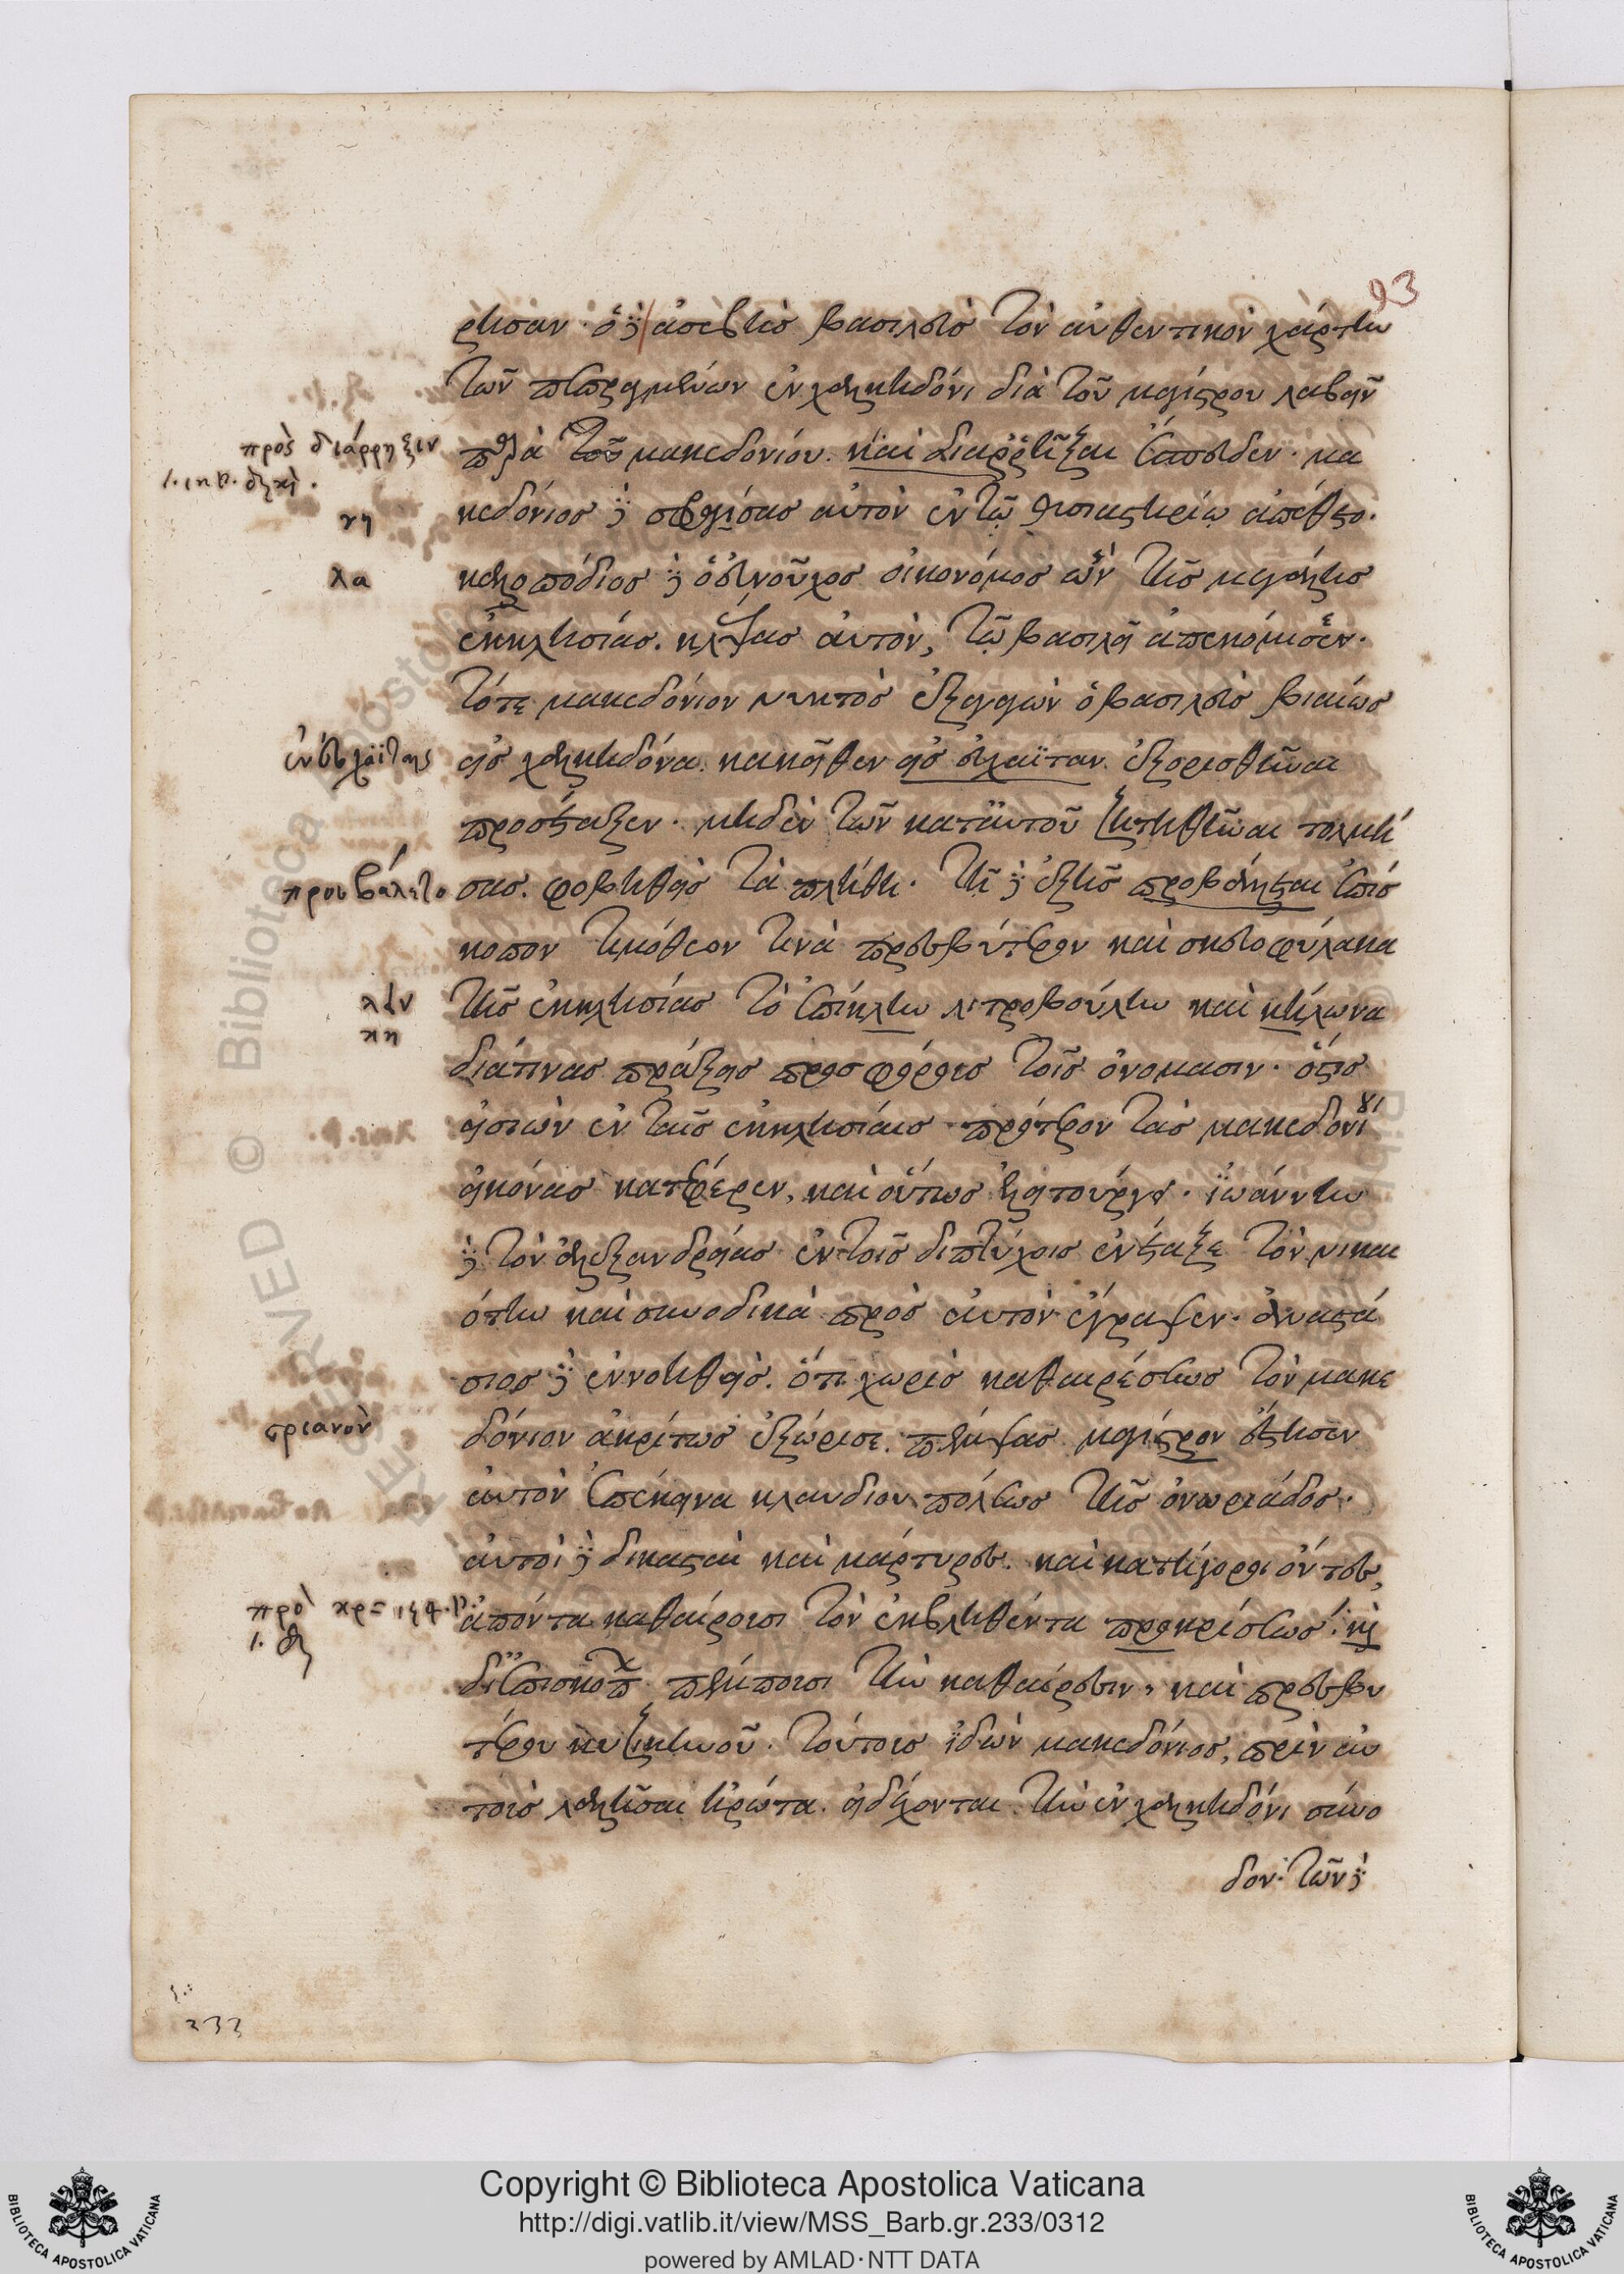 93
ρησαν. ὁ δὲ ἀσεβὴς βασιλεὺς τὸν αὐθεντικὸν χάρτην
τῶν πεπραγμένων ἐν χαλκηδόνι διὰ τοῦ μαγίστρου λαβεῖν
παρὰ τοῦ μακεδονίου. καὶ διαρρῆξαι ἔσπευδεν. μα
πρὸς διάρρηξιν
κεδόνιος δὲ σφραγίσας αὐτὸν ἐν τῷ θυσιαστηρίῳ ἀπέθετο.
γη
καλοπόδιος δὲ ὁ εὐνοῦχος οἰκονόμος ὢν τῆς μεγάλης
λα
ἐκκλησίας. κλέψας αὐτὸν, τῷ βασιλεῖ ἀπεκόμισεν.
τότε μακεδόνιον νυκτὸς ἐξαγαγὼν ὁ βασιλεὺς βιαίως
εἰς χαλκηδόνα. κακεῖθεν εἰς εὐχαΐταν ἐξορισθῆναι
ἐν εὐχαΐταις
προσέταξεν. μηδὲν τῶν κατ' αὐτοῦ ζητηθῆναι τολμή
σας. φοβηθεὶς τὰ πλήθη. τῇ δὲ ἑξῆς προβάλλεται ἐπίσ
προεβάλετο
κοπον τιμόθεον τινὰ πρεσβύτερον καὶ σκευοφύλακα
τῆς ἐκκλησίας τὸ ἐπίκλην λιτροβούλην καὶ κήλωνα
λιν
κη
διά τινας πράξεις προσφόρους τοῖς ὀνόμασιν. ὅστις
εἰσιὼν ἐν ταῖς ἐκκλησίαις πρότερον τὰς μακεδονίου
εἰκόνας κατέφερεν, καὶ οὕτως ἐλειτούργει. ἰωάννην
δὲ τὸν ἀλεξανδρείας ἐν τοῖς διπτύχοις ἐνέταξε τὸν νικαι
ότην καὶ συνοδικὰ πρὸς αὐτὸν ἔγραψεν. ἀναστά
σιος δὲ ἐννοηθεὶς. ὅτι χωρὶς καθαιρέσεως τὸν μακε
δόνιον ἀκρίτως ἐξώρισε. πέμψας μαγίστρον ἔστησεν
στριανὸν
αὐτὸν ἐπέκεινα κλαυδιουπόλεως τῆς ὀνωριάδος.
αὐτοὶ δὲ δικασταὶ καὶ μάρτυρες. καὶ κατήγοροι ὄντες,
ἀπόντα καθαίρουσι τὸν ἐκβληθέντα προκρίσεως. καὶ
πρὸ
δι' ἐπισκόπων πέμπουσι τὴν καθαίρεσιν, καὶ πρεσβυ
τέρου κυζικηνοῦ. τούτους ἰδὼν μακεδόνιος, πρὶν αὐ
τοὺς λαλῆσαι ἠρώτα. εἰ δέχονται τὴν ἐν χαλκηδόνι σύνο
δον. τῶν δὲ
233
Copyright © Biblioteca Apostolica Vaticana
http://digi.vatlib.it/view/MSS_Barb.gr.233/0312
powered by AMLAD·NTT DATA
BIBLIOTECA APOSTOLICA VATICANA
BIBLIOTECA APOSTOLICA VATICANA